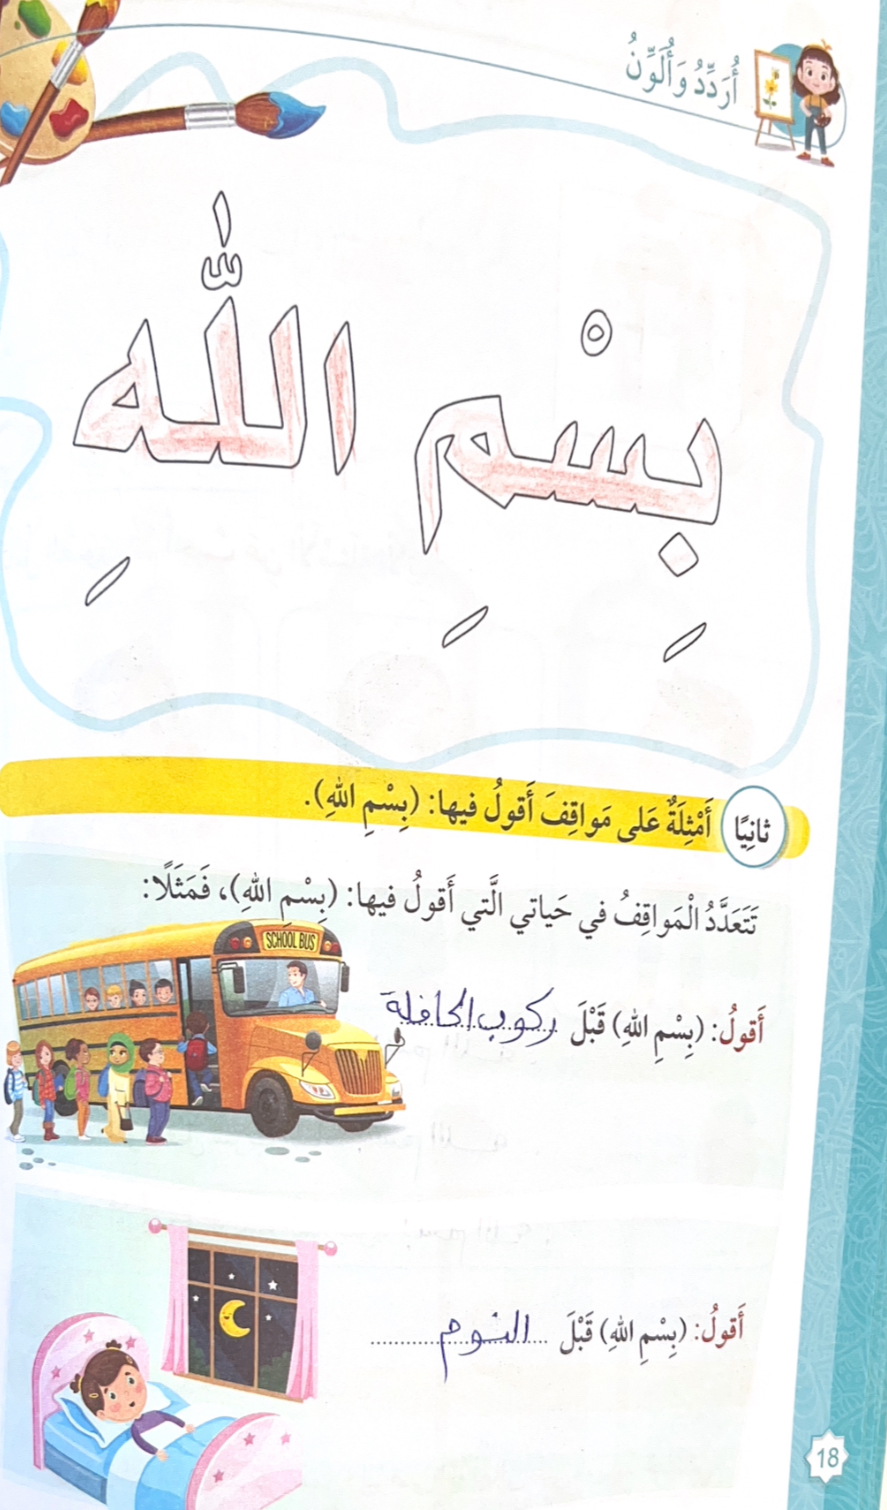 أُرَدِّدُ وَأُلَوِّنُ
بِسْمِ اللّٰهِ
ثانِيًا أَمْثِلَةٌ عَلى مَواقِفَ أَقولُ فيها: (بِسْمِ اللهِ).
تَتَعَدَّدُ الْمَواقِفُ في حَياتي الَّتي أَقولُ فيها: (بِسْمِ اللهِ)، فَمَثَلًا:
SCHOOL BUS
أَقولُ: (بِسْمِ اللهِ) قَبْلَ ركوب الحافلة
أَقولُ: (بِسْمِ اللهِ) قَبْلَ النوم
18